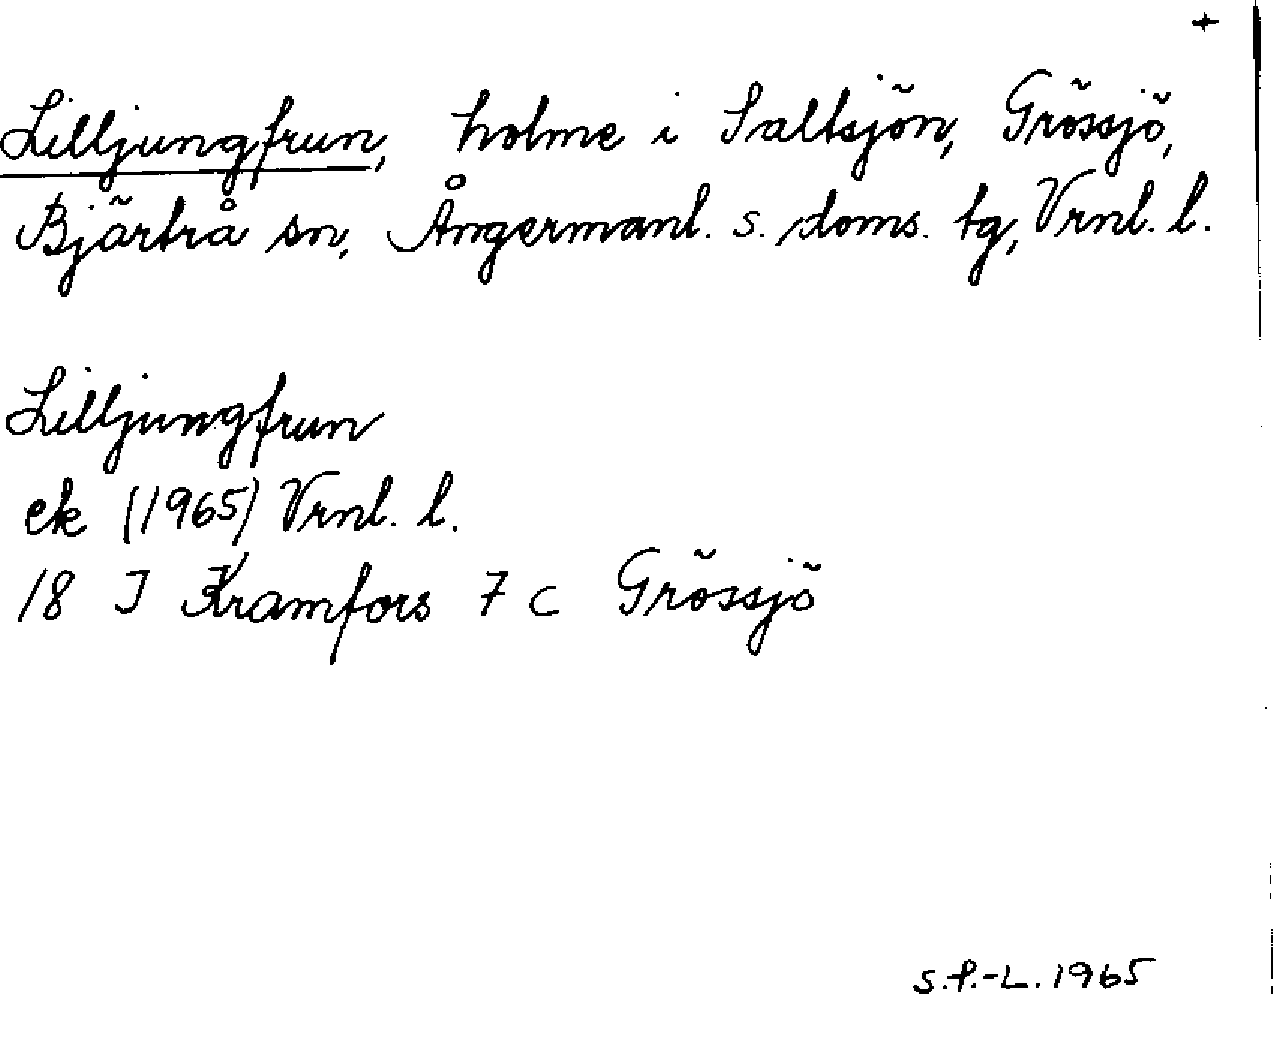 +
Lilljungfrun, holme i Saltsjön, Grössjö,
Bjärtrå sn, Ångermanl. s. doms. tg, Vrnl. l.
Lilljungfrun
ek (1965) Vrnl. l.
18 I Kramfors 7 c Grössjö
S.P.-L. 1965